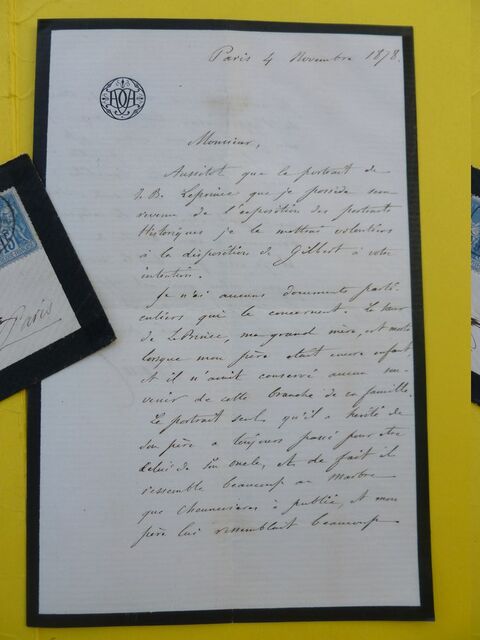 Paris 4 Novembre 1878.
Monsieur,
Aussitot que le portrait de
J. B. Leprince que je possède sera
revenu de l'exposition des portraits
Historiques je le mettrai volontiers
à la disposition de Gilbert à votre
intention.
Je n'ai aucuns documents parti-
culiers qui le concernent. La sœur
de Le Prince, ma grand mère, est morte
lorsque mon père était encore enfant,
et il n'avait conservé aucun sou-
venir de cette branche de sa famille.
Le portrait seul qu'il a hérité de
son père a toujours passé pour être
celui de son oncle, et de fait il
ressemble beaucoup au
que à publié, et mon
père lui ressemblait beaucoup
Paris